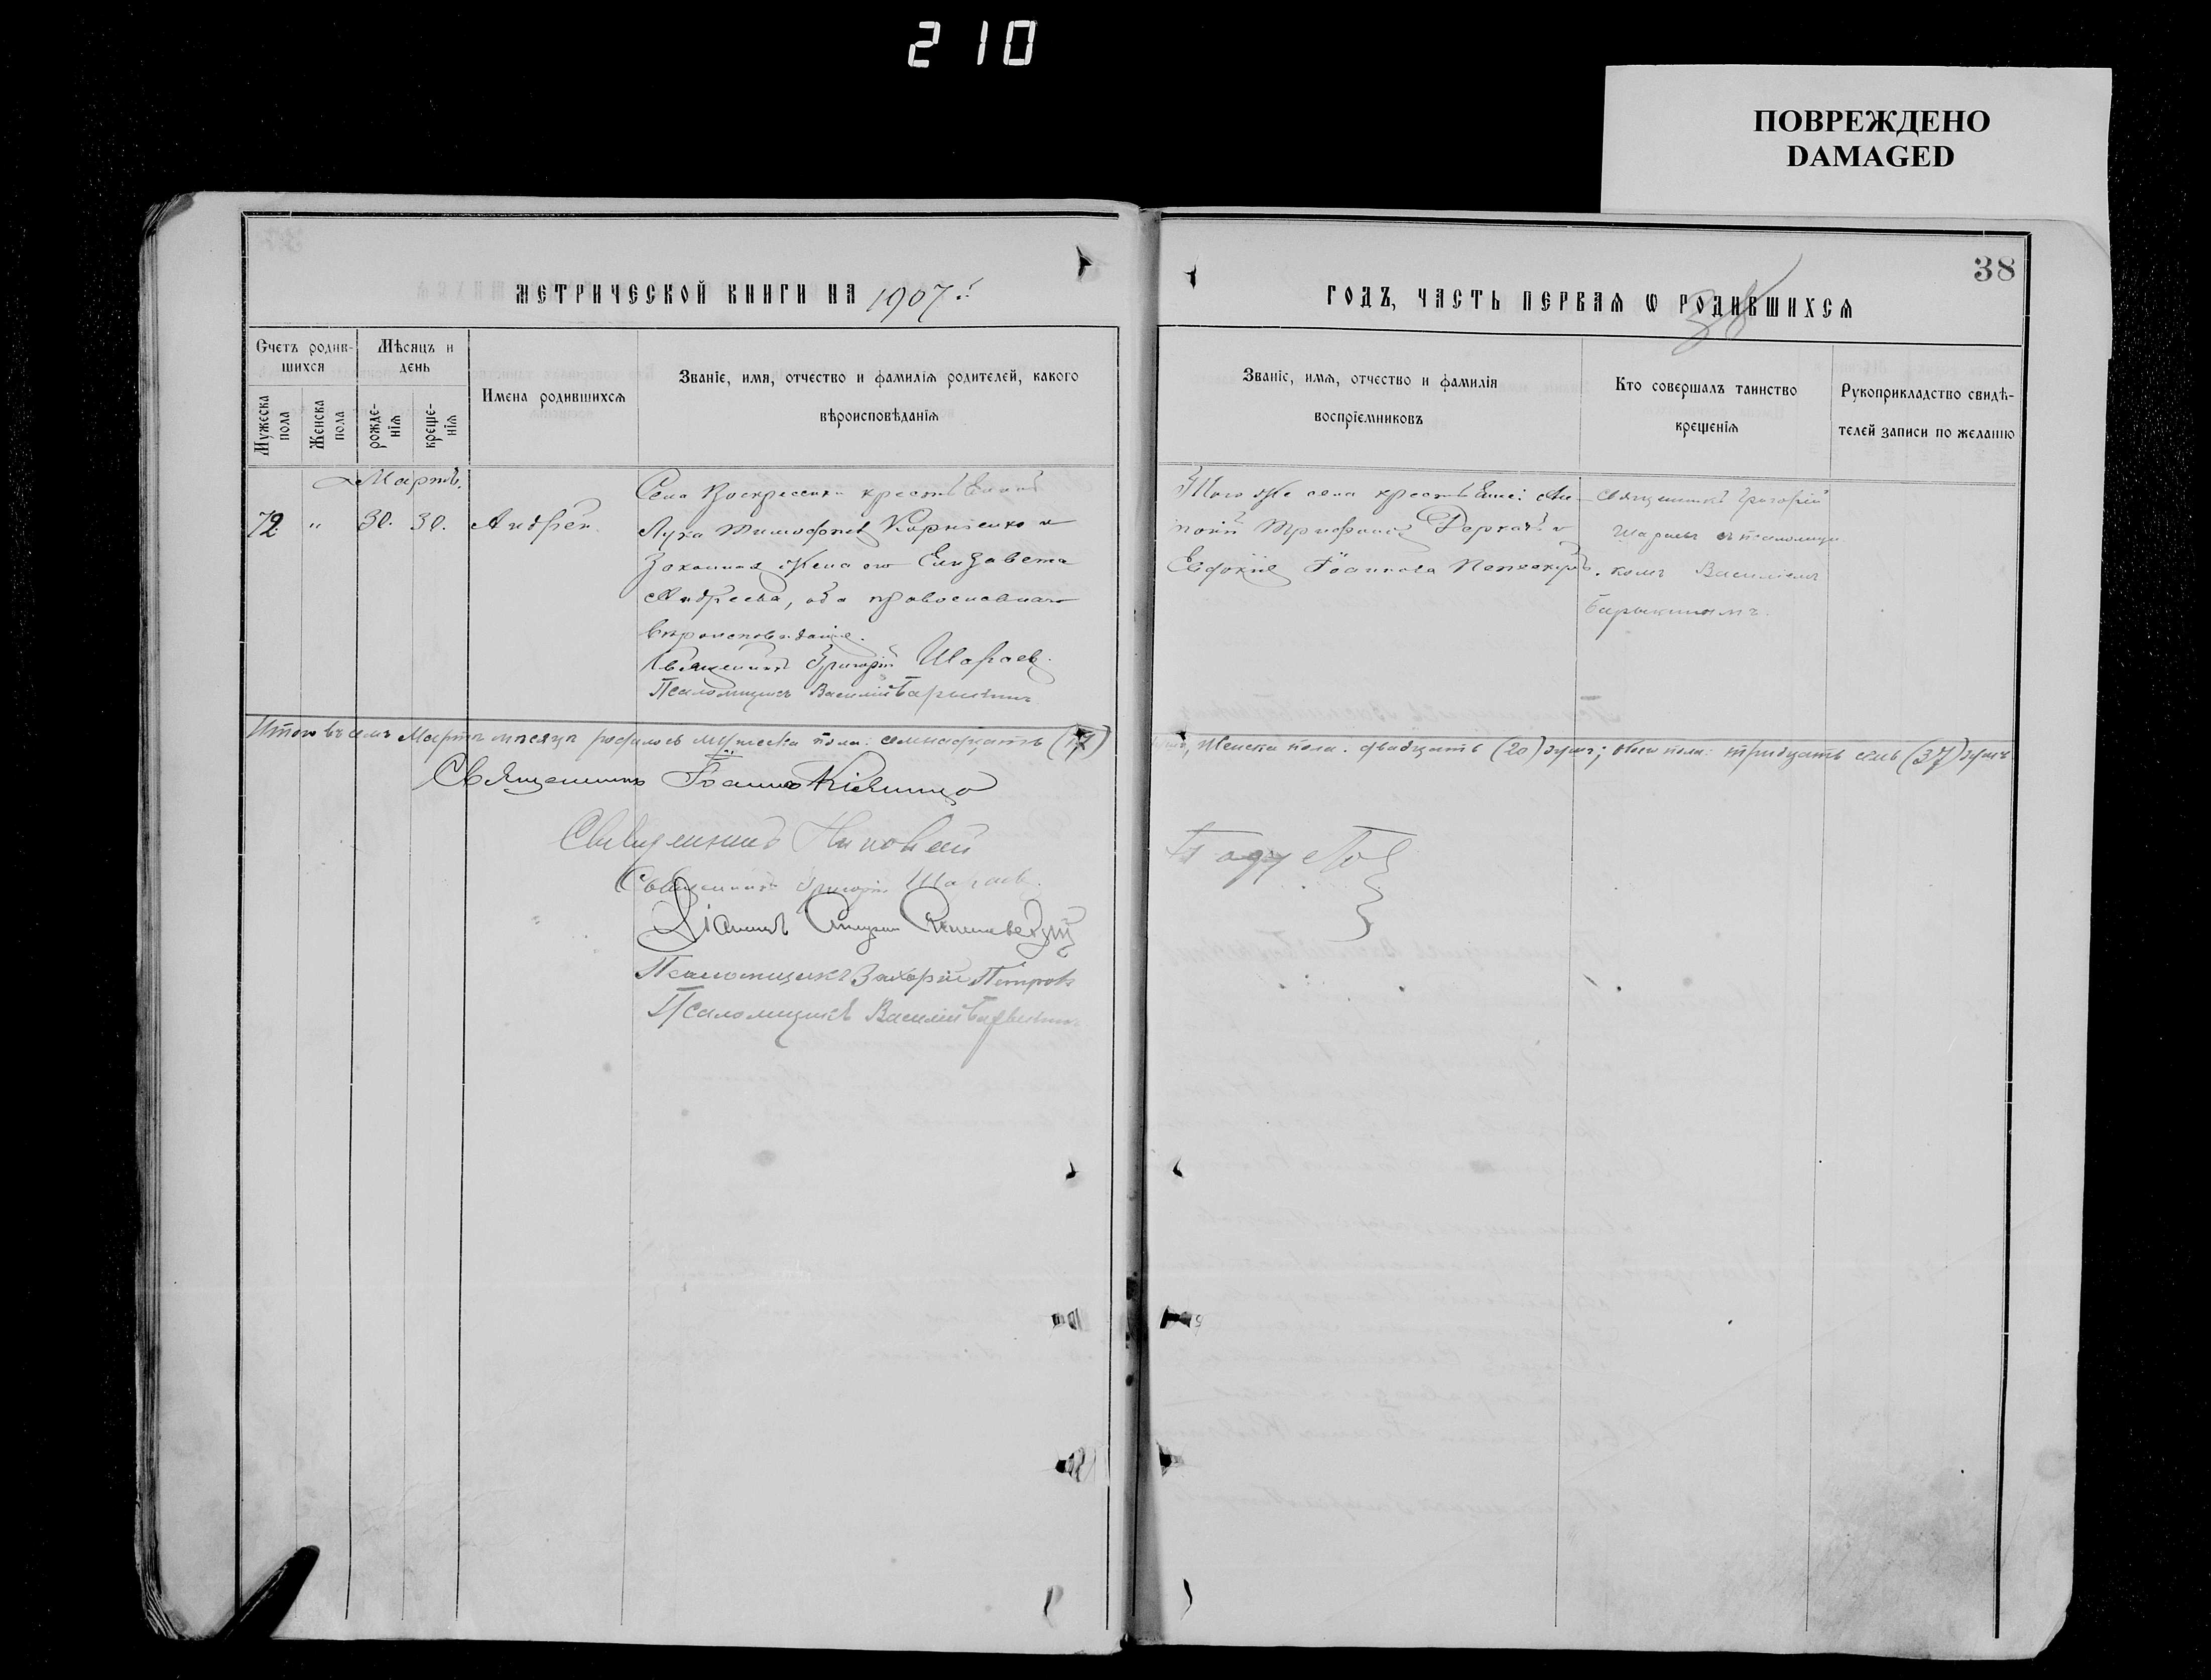 210
ПОВРЕЖДЕНО
DAMAGED
38
МЕТРИЧЕСКОЙ КНИГИ НА 1907 г.
ГОДЪ, ЧАСТЬ ПЕРВАѦ Ѡ РОДИВШИХСѦ
38
Счетъ родив-
шихся
Мужеска
пола
Женска
пола
Мѣсяцъ и
день
рожде-
нія
креще-
нія
Имена родившихсѧ
Званіе, имя, отчество и фамилія родителей, какого
вѣроисповѣданія
Званіе, имѧ, отчество и фамилія
воспріемниковъ
Кто совершалъ таинство
крещенія
Рукоприкладство свидѣ-
телей записи по желанію
Мартъ.
72. " 30. 30. Андрей
Села Воскресенки крестьянинъ
Лука Тимофеев Корніенко и
Законная жена его Елизавета
Андреева, оба православнаго
вѣроисповѣданія.
Священникъ Григорій Шараев
Псаломщикъ Василій Барыкинъ
Того же села крестьяне:
Трифонов Деркачъ и
Евдокія Іоаннова
Священникъ Григорій
съ псаломщи
комъ Василіемъ
Барыкинымъ.
Итого въ семъ Мартѣ мѣсяцѣ родилось мужеска пола: семнадцать (17)
женска пола: двадцать (20) душъ; обоего пола: тридцать семь (37) душъ
Священникъ Іоаннъ
Священникъ Николай
Священникъ Григорій Шараев
Діаконъ
Псаломщикъ Захарій Петровъ
Псаломщикъ Василій Барыкинъ